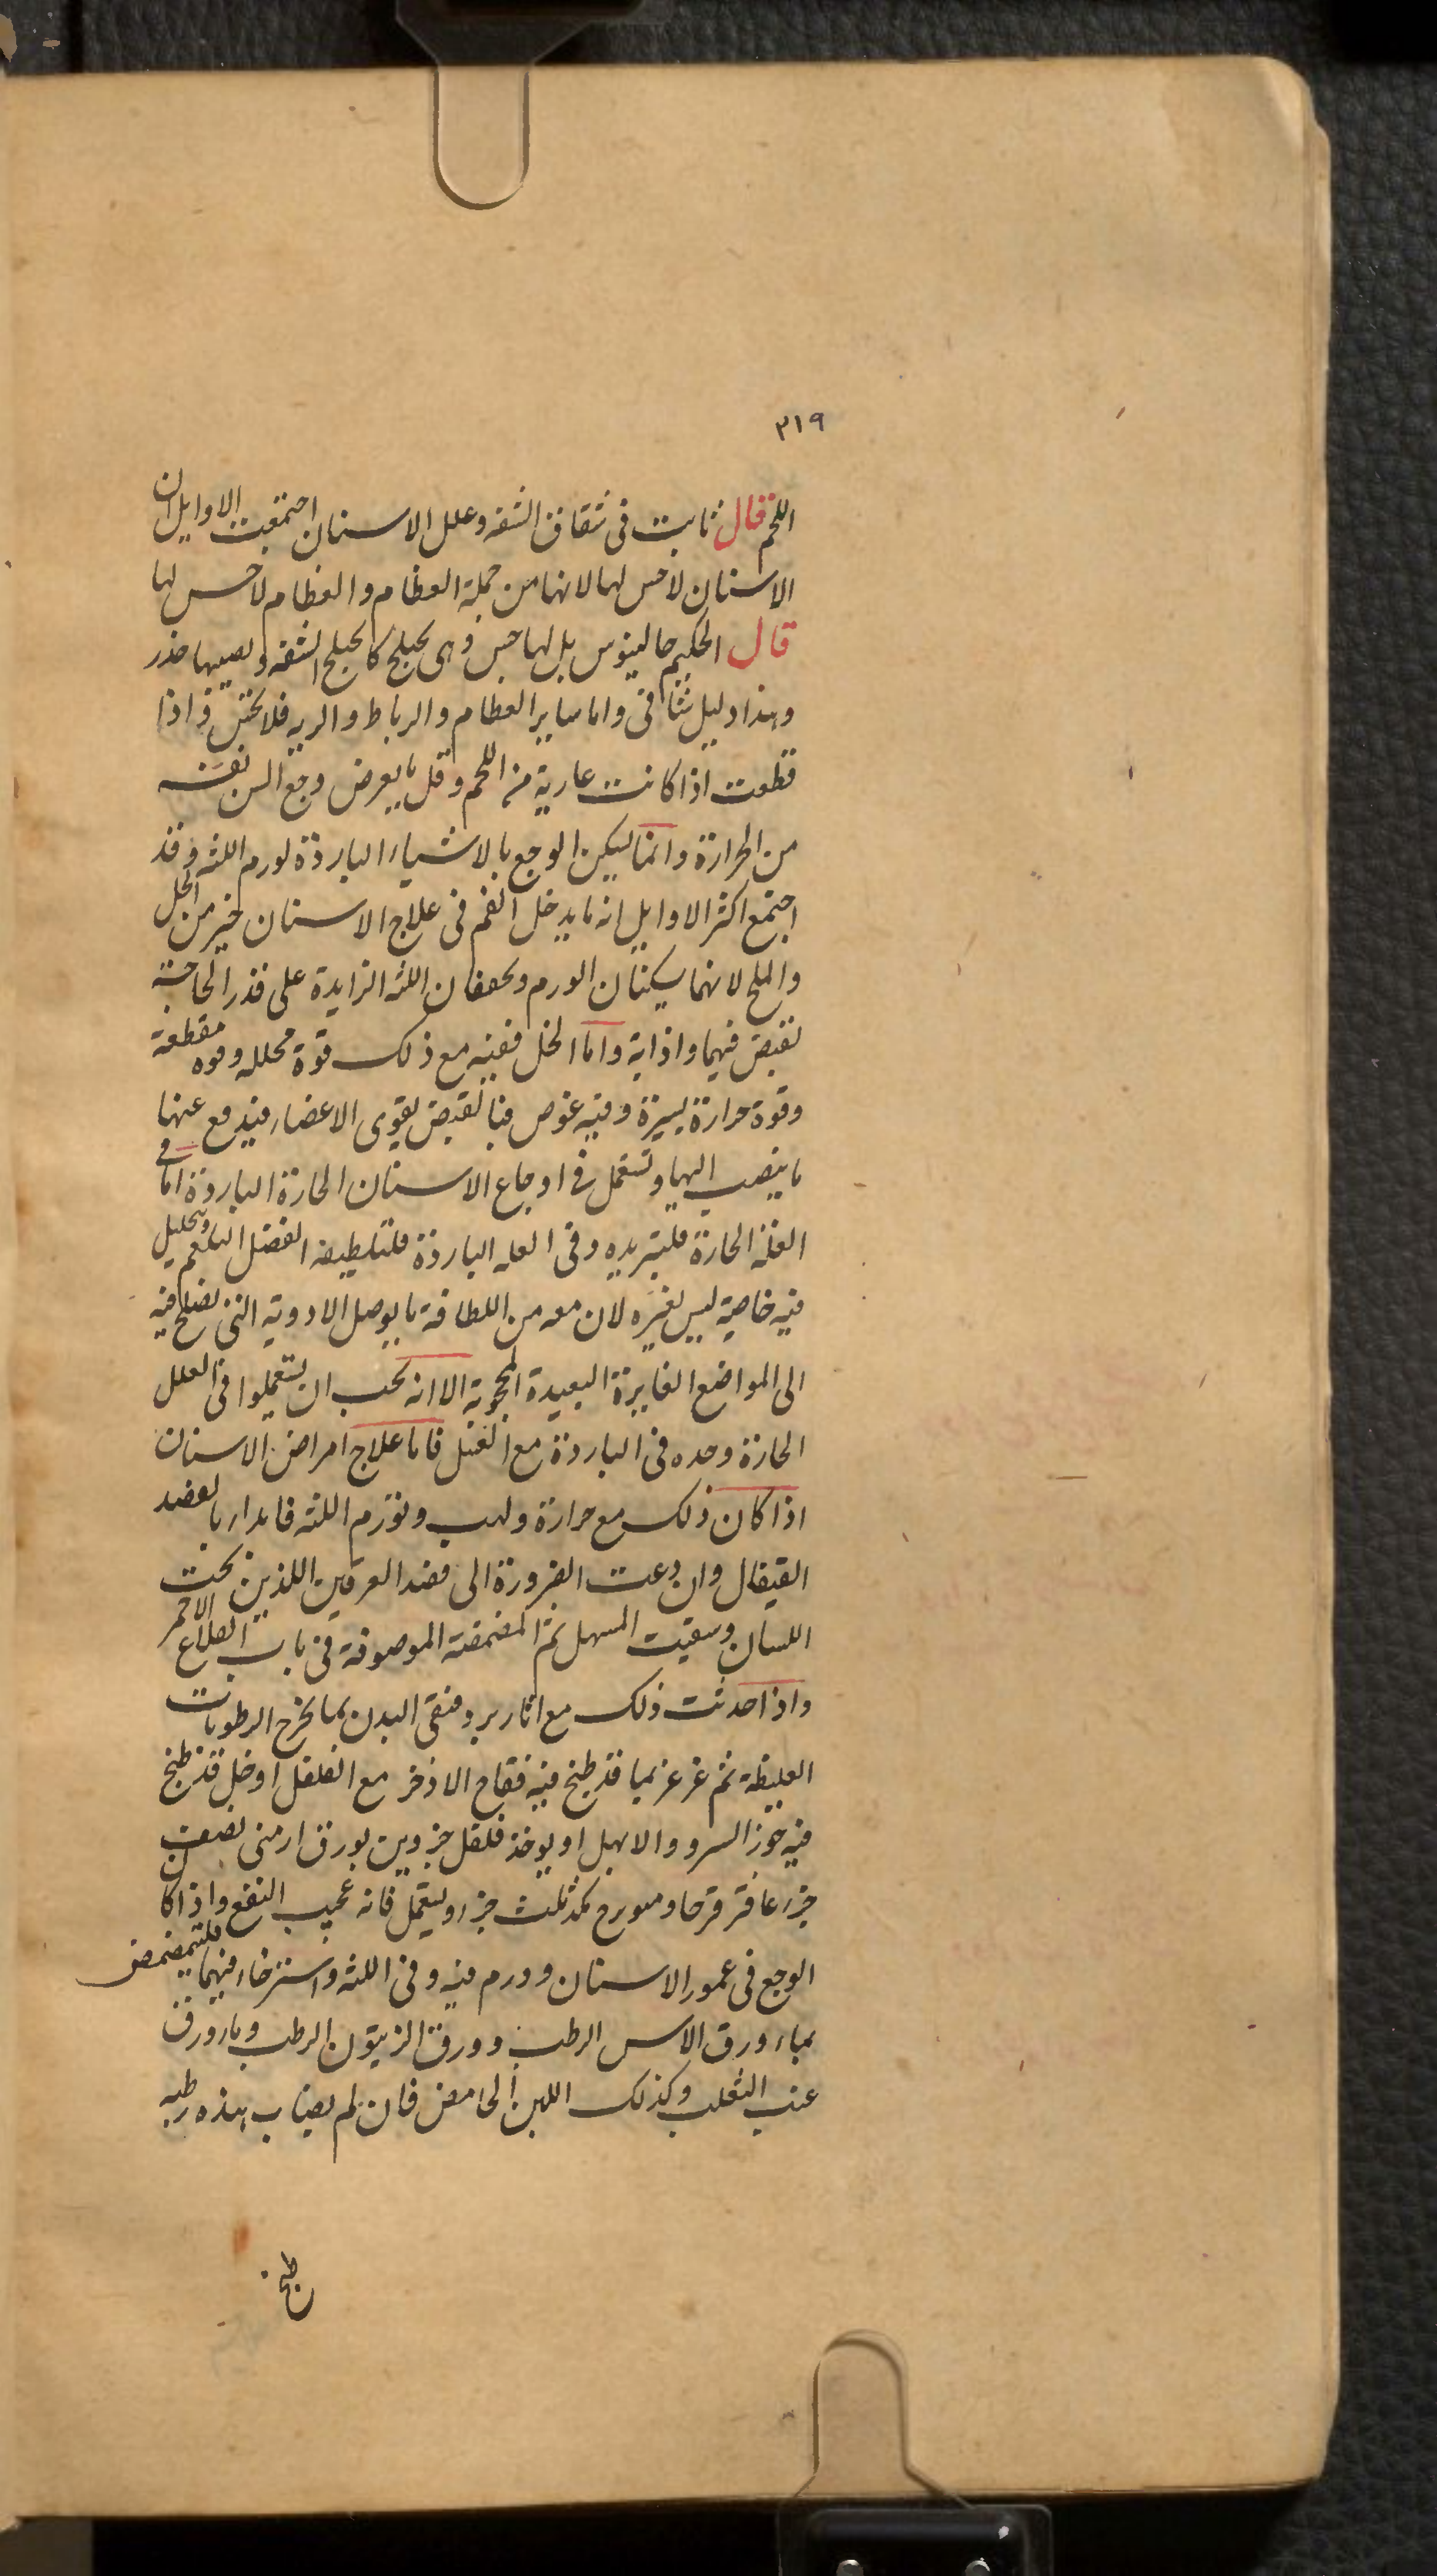 ٣١٩
اللحم قال ثابت فى شقاق الشفه وعلل الاسنان اجتمعت الاوايل ان
الاسنان لا حس لها لانها من جملة العظام والعظام لا حس لها
قال الحكيم جالينوس بل لها حس وهى تختلج كما تختلج الشفه ويصيبها خدر
وهذا دليل شافى واما ساير العظام والرباط والريه فلا تحس واذا
قطعت اذا كانت عارية من اللحم وقل ما يعرض وجع السن نفسه
من الحرارة وانما يسكن الوجع بالاشياء الباردة لورم اللثه وقد
اجتمع اكثر الاوايل انه ما يدخل الفم فى علاج الاسنان خير من الخل
والملح لانهما يسكنان الورم ويجففان اللثه الزايدة على قدر الحاجة
بقبض فيهما واذابة واما الخل ففيه مع ذلك قوة محلله وقوه مقطعة
وقوة حرارة يسيرة وفيه غوص فبالقبض يقوى الاعضاء فيدفع عنها
ما ينصب اليها وتستعمل فى اوجاع الاسنان الحارة الباردة اما فى
العلة الحارة فلتبريده وفى العله الباردة فلتلطيفه الفضل البلغم وتحليل
فيه خاصية ليس لغيره لان معه من اللطافة ما يوصل الادوية التى تصلح فيه
الى المواضع الغايرة البعيدة المحجوبة الا انه يجب ان يستعملوا فى العلل
الحارة وحده فى الباردة مع العسل فاما علاج امراض الاسنان
اذا كان ذلك مع حرارة ولهب وتورم اللثه فابدأ بالفصد
القيفال وان دعت الضرورة الى فصد العرقين اللذين تحت
اللسان وسقيت المسهل ثم المضمضة الموصوفة فى باب القلاع الاحمر
واذا حدثت ذلك مع اثار برد فنقى البدن بما يخرج الرطوبات
الغليظة ثم غرغر بما قد طبخ فيه فقاح الاذخر مع الفلفل او خل قد طبخ
فيه جوز السرو والابهل او يوخذ فلفل جزوين بورق ارمنى نصف
جزء عاقر قرحا وميويزج ثلث جزء ويستعمل فانه عجيب النفع واذا كان
الوجع فى عمور الاسنان وورم فيه وفى اللثه واسترخاء فيهما فليتمضمض
بماء ورق الاس الرطب وورق الزيتون الرطب وماء ورق
عنب الثعلب وكذلك اللبن الحامض فان لم يصاب هذه رطبه
طبخ